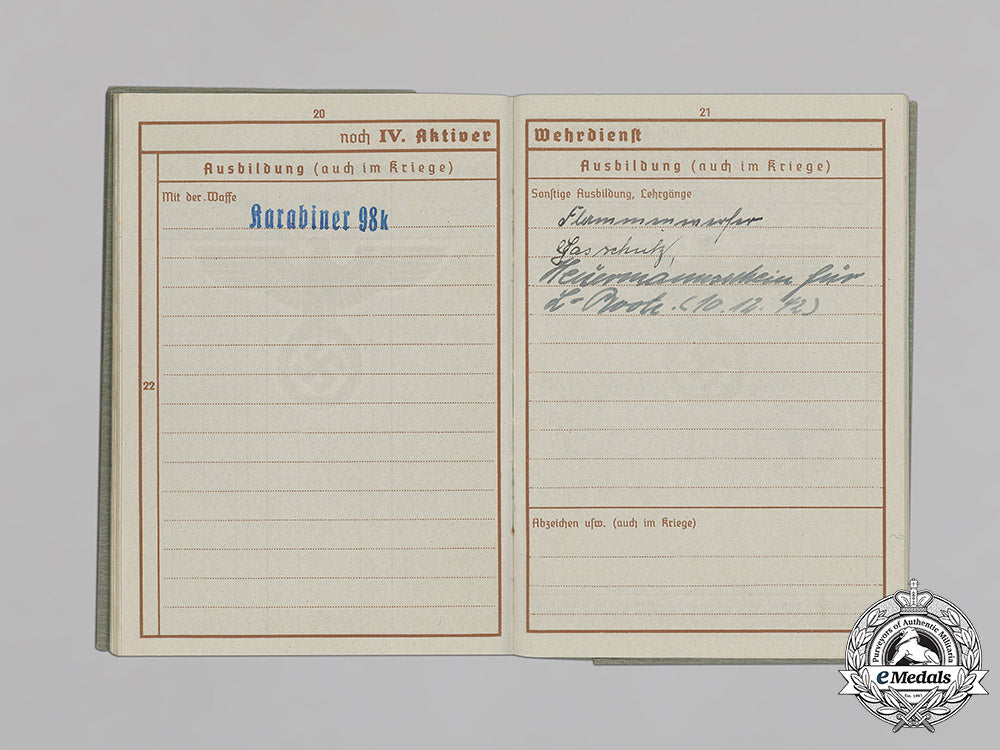 20
noch IV. Aktiver
Ausbildung (auch im Kriege)
Mit der Waffe
Karabiner 98k
22
21
Wehrdienst
Ausbildung (auch im Kriege)
Sonstige Ausbildung, Lehrgänge
Flammenwerfer
Gasschutz,
Steuermannsschein für
L-Boote. (10. 12. 42)
Abzeichen usw. (auch im Kriege)
Purveyors of Authentic Militaria
eMedals